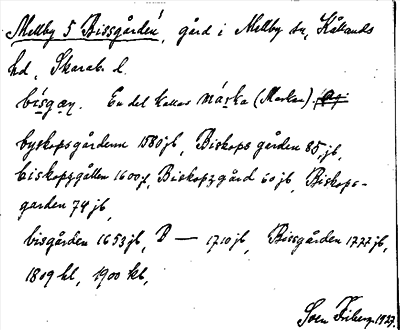 Mellby 5 Bissgården, gård i Mellby sn, Kållands
hd, Skarab. l.
bísgæn. En del kallar máska (Maskan),
byskopsgårdenn 1580 jb, Biskops gården 85 jb,
biskopzgålten 1600 jb, Biskopzgård 60 jb, Biskops-
garden 74 jb,
bisgården 1653 jb, B — 1710 jb, Bissgården 1777 jb,
1809 hl, 1900 kb,
Sven Friberg 1927.